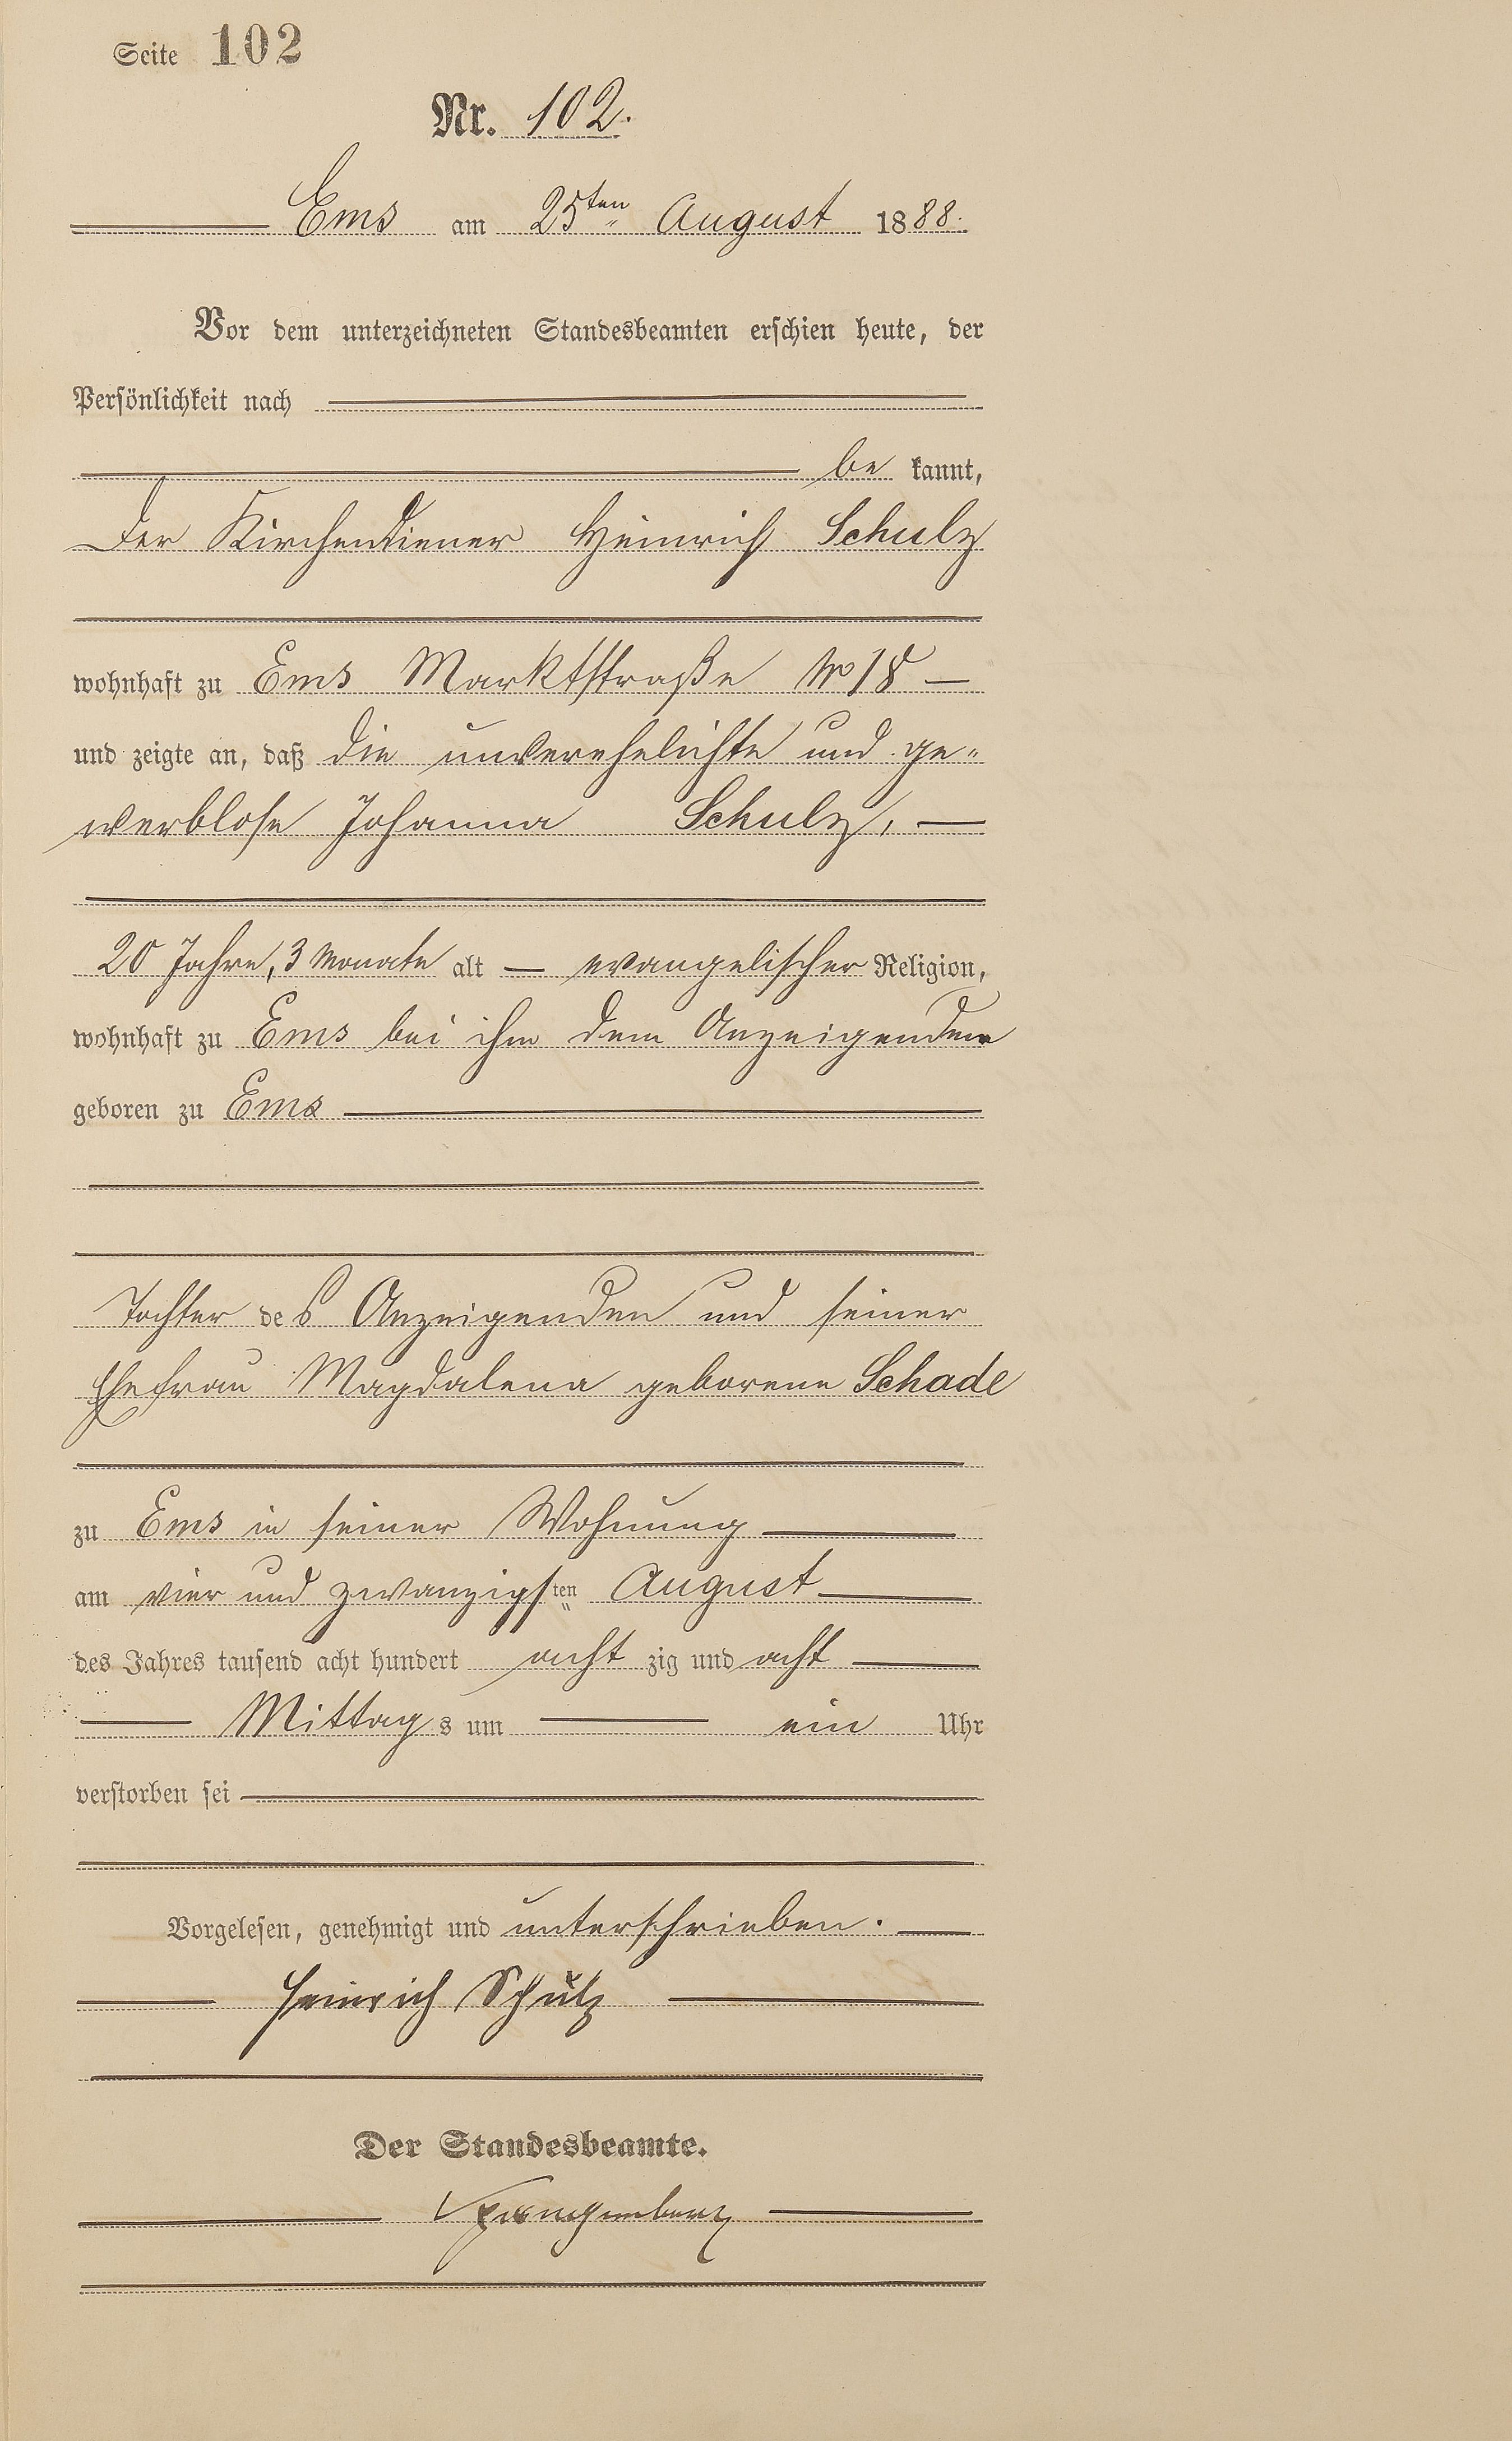 Seite 102
Nr. 102.
Ems am 25ten August 1888.
Vor dem unterzeichneten Standesbeamten erschien heute, der
Persönlichkeit nach
be kannt,
der Kirchendiener Heinrich Schulz
wohnhaft zu Ems Marktstraße No 18 —
und zeigte an, daß die unverehelichte und ge-
werblose Johanna Schulz, —
20 Jahre, 3 Monate alt — evangelischer Religion,
wohnhaft zu Ems bei ihm dem Anzeigenden
geboren zu Ems
Tochter des Anzeigenden und seiner
Ehefrau Magdalena geborene Schade
zu Ems in seiner Wohnung
am vier und zwanzigsten August
des Jahres tausend acht hundert acht zig und acht
Mittags um ein Uhr
verstorben sei
Vorgelesen, genehmigt und unterschrieben.
Heinrich Schulz
Der Standesbeamte.
Spangenberg